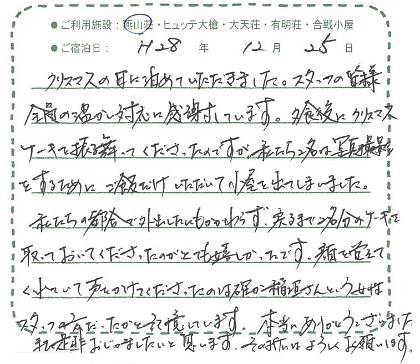 ●ご利用施設:燕山荘・ヒュッテ大槍・大天荘・有明荘・合戦小屋
●ご宿泊日: H28 年 12 月 25 日
クリスマスの日に泊めていただきました。スタッフの皆様
全員の温かい対応に感謝しています。夕食後にクリスマス
ケーキを振る舞ってくださったのですが、私たち2名は星空撮影
をするために ご飯だけいただいて小屋を出てしまいました。
私たちの都合で外出したにもかかわらず、戻るまで2名分のケーキを
取っておいてくださったのがとても嬉しかったです。顔を覚えて
くれていて声をかけてくださったのは確か稲垣さんという女性
スタッフの方だったかと記憶しています。本当にありがとうございました
また是非おじゃましたいと思います。その時はよろしくお願いします。